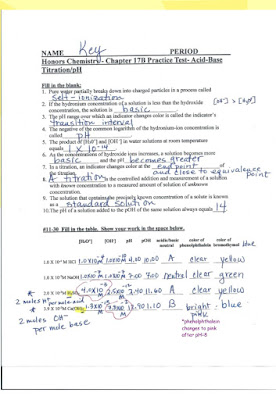 NAME Key PERIOD
Honors Chemistry- Chapter 17B Practice Test- Acid-Base
Titration/pH
Fill in the blank:
1. Pure water partially breaks down into charged particles in a process called
self-ionization
2. If the hydronium concentration of a solution is less than the hydroxide
concentration, the solution is basic. [OH⁻] > [H₃O⁺]
3. The pH range over which an indicator changes color is called the indicator's
transition interval
4. The negative of the common logarithm of the hydronium-ion concentration is
called pH
5. The product of [H₃O⁺] and [OH⁻] in water solutions at room temperature
equals 1 x 10⁻¹⁴
6. As the concentrations of hydroxide ions increases, a solution becomes more
basic and the pH becomes greater
7. In a titration, an indicator changes color at the end point of
the titration. and close to equivalence point
8. A titration is the controlled addition and measurement of a solution
with known concentration to a measured amount of solution of unknown
concentration.
9. The solution that contains the precisely known concentration of a solute is known
as a standard solution
10. The pH of a solution added to the pOH of the same solution always equals 14
#11-30 Fill in the table. Show your work in the space below.
[H₃O⁺] [OH⁻] pH pOH acidic/basic neutral color of phenolphthalein color of bromthymol blue
4.00 10.00 A clear yellow
7.00 7.00 neutral clear green
2.40 11.60 A clear yellow
12.90 1.10 B bright pink blue
* 2 moles H⁺ per mole acid
* 2 moles OH⁻ per mole base
*phenolphthalein
changes to pink
after pH=8